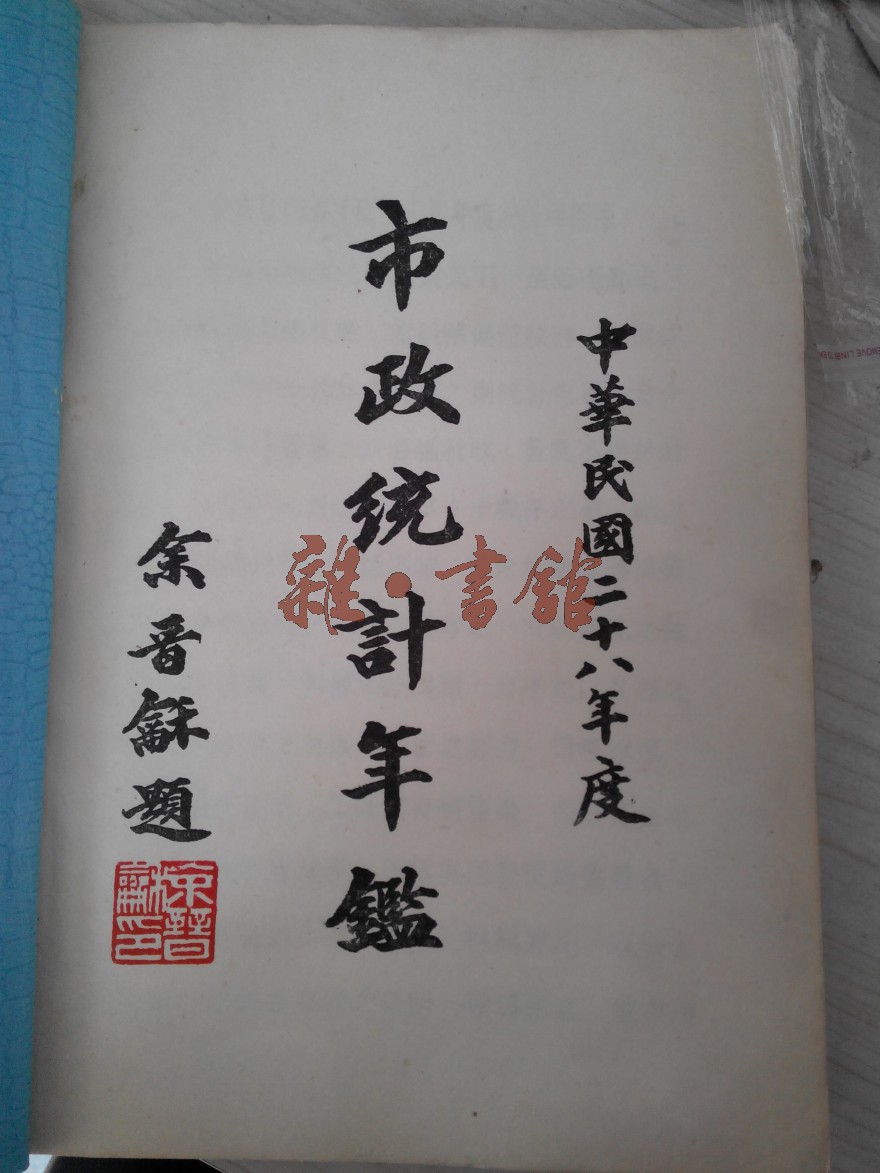 中華民國二十八年度
市政統計年鑑
余晉龢題
余晉龢印
雜·書館